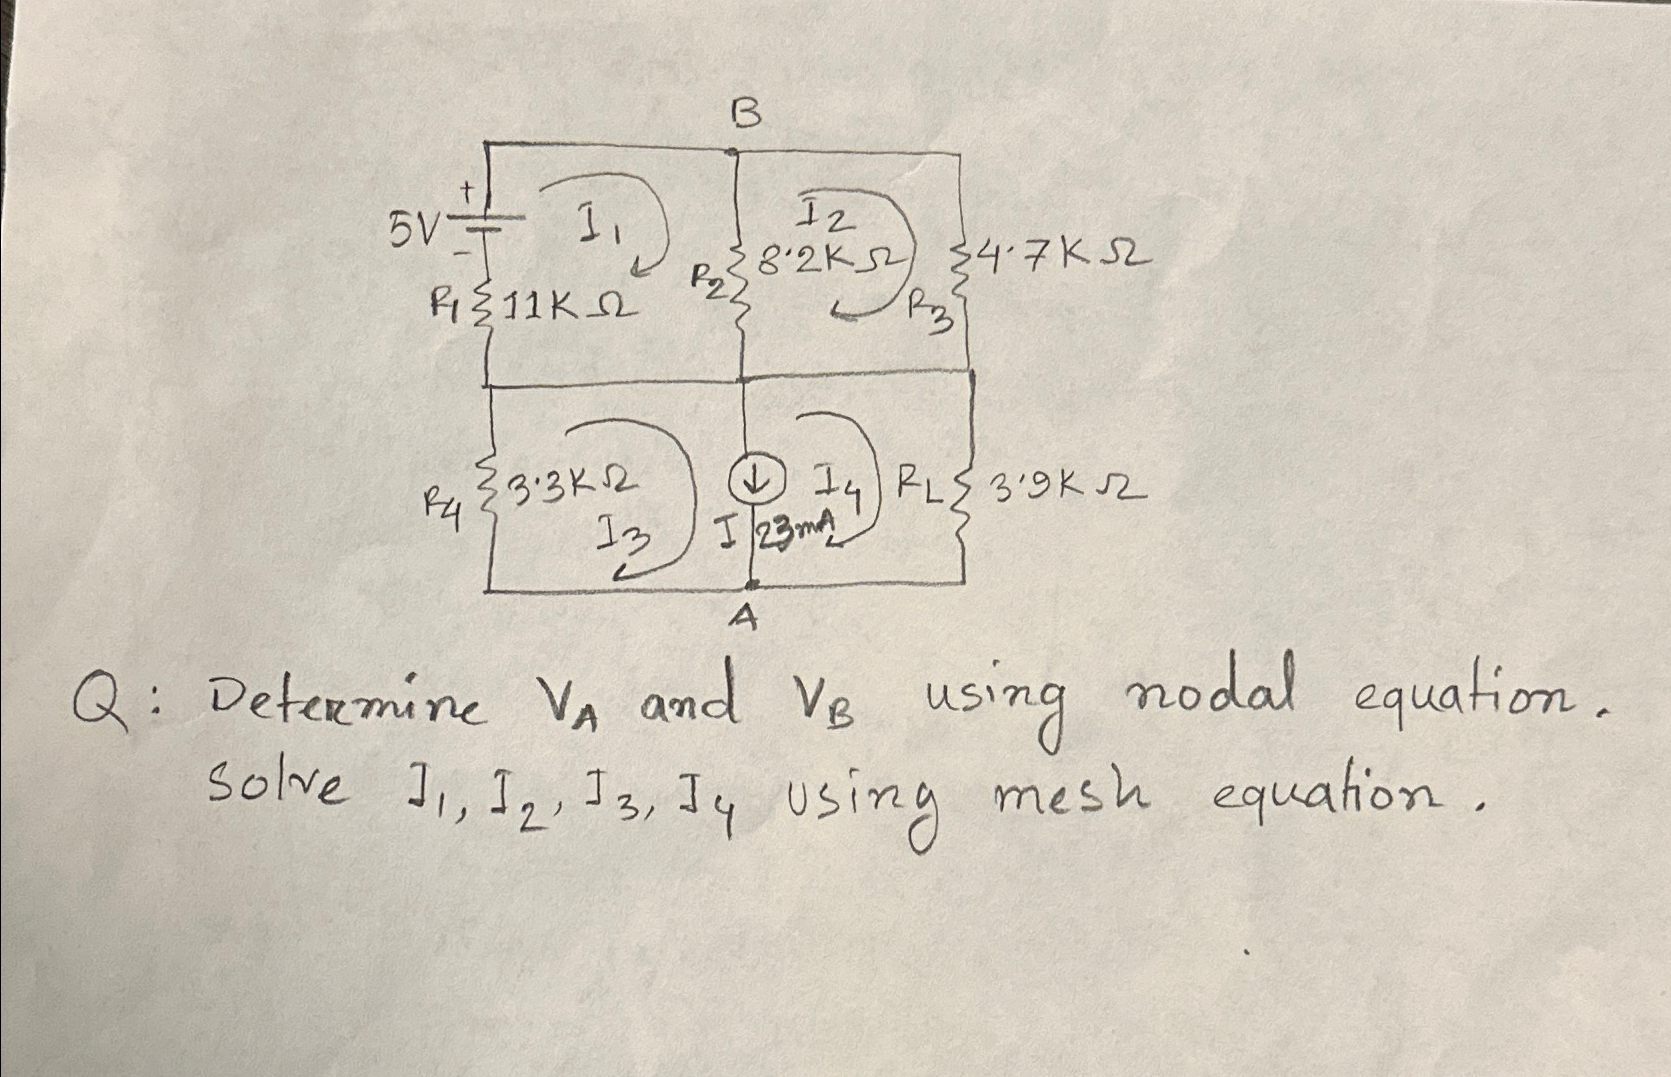 B
+
5V
-
I1
I2
R1 11KΩ
R2 8.2KΩ
R3 4.7KΩ
R4 3.3KΩ
I3
I 23mA
I4
RL 3.9KΩ
A
Q: Determine VA and VB using nodal equation.
Solve I1, I2, I3, I4 using mesh equation.